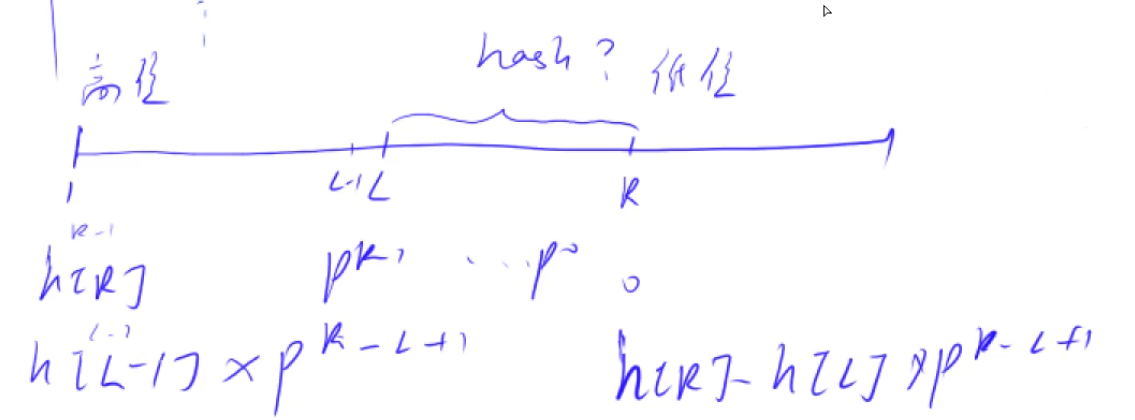 hash ?
高位 低位
1 L-1 L R
R-1
h[R] p^R-1 ... p^0 0
L-1
h[L-1] × p^R-L+1 h[R]- h[L] × p^R-L+1